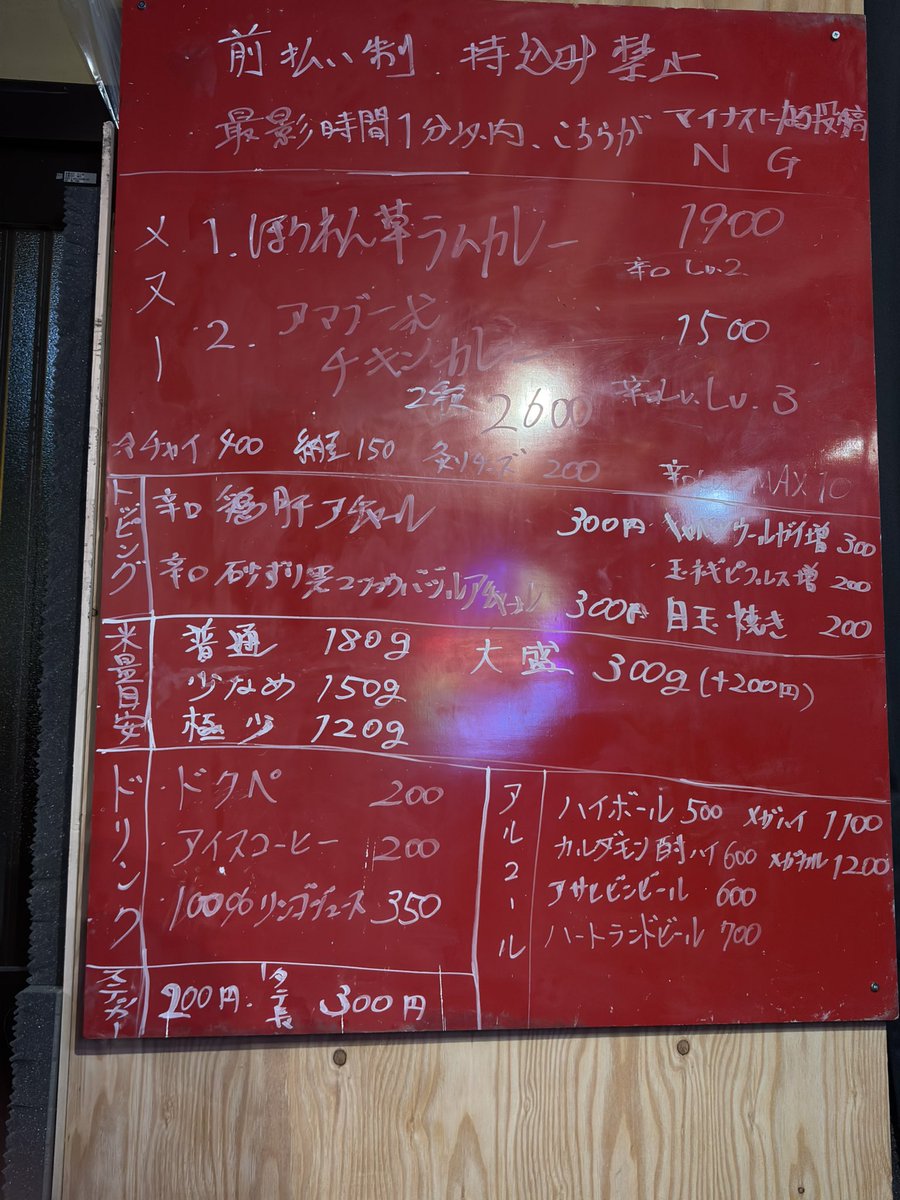 前払い制 持込み禁止
最影時間1分以内、こちらが マイナスに成る投稿
NG
メヌー
1.ほうれん草ラムカレー 1900
辛口 Lv.2
2. アマゾー式 1500
チキンカレー
2種 2600 辛口Lv.Lv.3
チャイ 400 納豆 150 炙りチーズ 200
辛口 MAX 10
トッピング
辛口 鶏肝アチャール 300円
辛口 砂ずり黒コショウバジルアチャール 300円
増 300
玉ネギピクルス増 200
目玉焼き 200
米量目安
普通 180g 大盛 300g(+200円)
少なめ 150g
極少 120g
ドリンク
ドクペ 200
アイスコーヒー 200
100%リンゴジュース 350
アルコール
ハイボール 500 メガハイ 1100
カルダモン酎ハイ 600 メガカル 1200
アサヒビンビール 600
ハートランドビール 700
ステッカー 200円. タテ長 300円